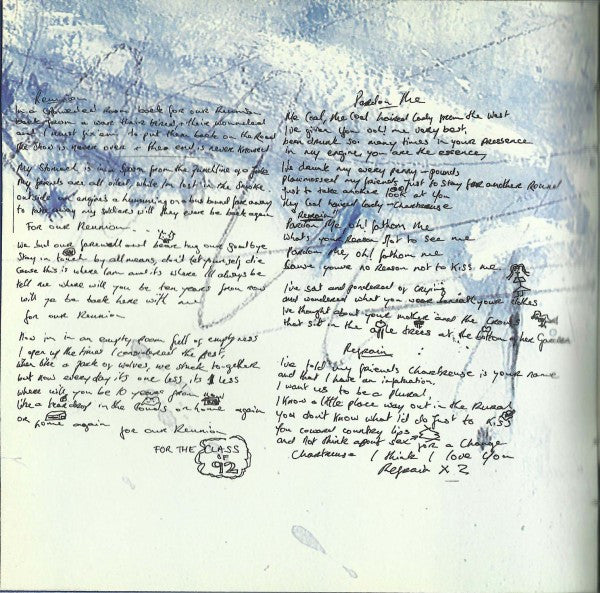 Reunion
In a crowded Room back for our Reunion
back from a war
and I must to put them back on the Road
the show is never over + the end is never
My stomach is in a spasm from the punchline of a joke
My friends are all over while I'm lost in the smoke
outside our engines a hummung on a bus bound far away
to my sisters will they ever be back again
FOR OUR REUNION
we but our farewell and our goodbye
Stay in touch by all means, don't let yourself die
Cause this is where I am and its where I'll always be
tell me where will you be ten years from now
will ya be back here with me
for our Reunion
Now I'm in an empty Room full of emptyness
I open up the times I the past,
when like a pack of wolves, we stuck together
but now everyday its one less, its 1 less
where will you be 10 years from now
like a in the or home again
or home again for our Reunion
FOR THE CLASS
OF
92
Pardon Me
Me Coal, the Coal haired lady from the West
I've given you ooh! me very best,
been drunk so many times in your presence
in my engine you are the essence,
I've drunk my every penny - pounds
my friends, just to stay for another Round
just to take another look at you
Hey Coal haired lady - Chartreuse
"Refrain"
Pardon me oh! fathom me
What's your Reason Not to see me
Pardon me, oh! fathom me
you've no Reason not to Kiss me
I've sat and pondered of crying
and wondered what you wear beneath your clothes
I've thought about your mother and the Crows
that sit in the apple trees at the bottom of her Garden
Refrain
I've told my friends Chartreuse is your name
and that I have an infatuation.
I want us to be a Plural,
I know a little place way out in the Rural
You don't know what I'd do just to Kiss
You coward country lips
and not think about sex for a Change
Chartreuse I think I love you
Refrain x 2